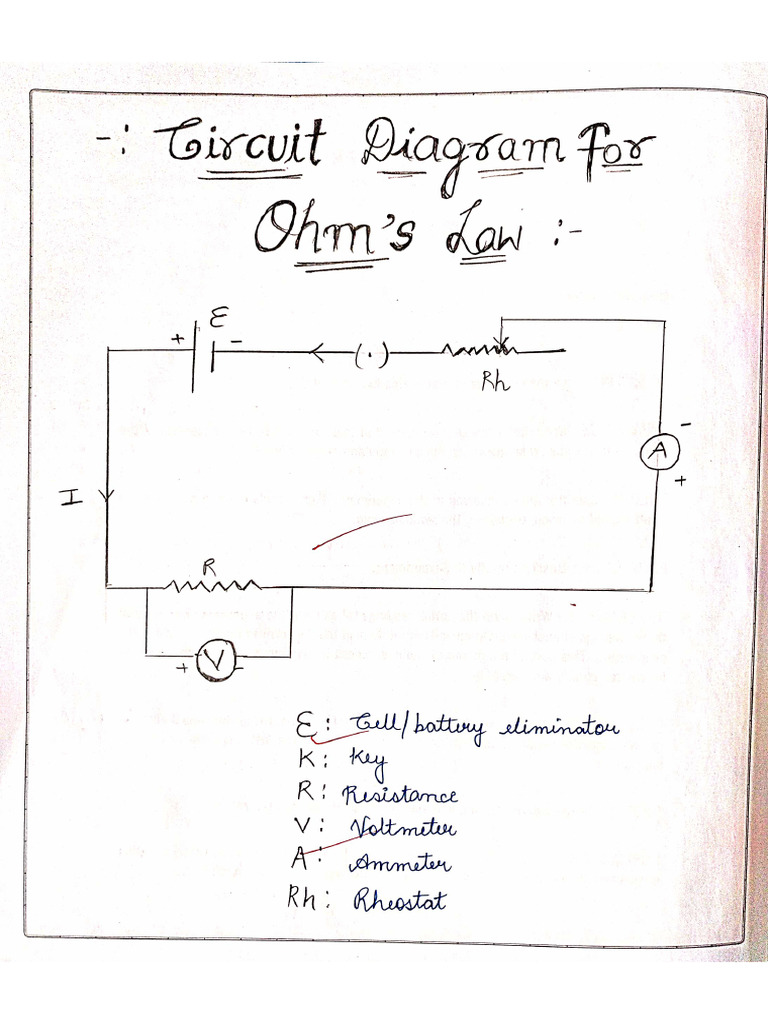 -: Circuit Diagram For
Ohm's Law :-
ε
+ -
(·)
Rh
-
A
+
I
R
+ V -
ε: Cell/battery eliminator
K: Key
R: Resistance
V: Voltmeter
A: Ammeter
Rh: Rheostat